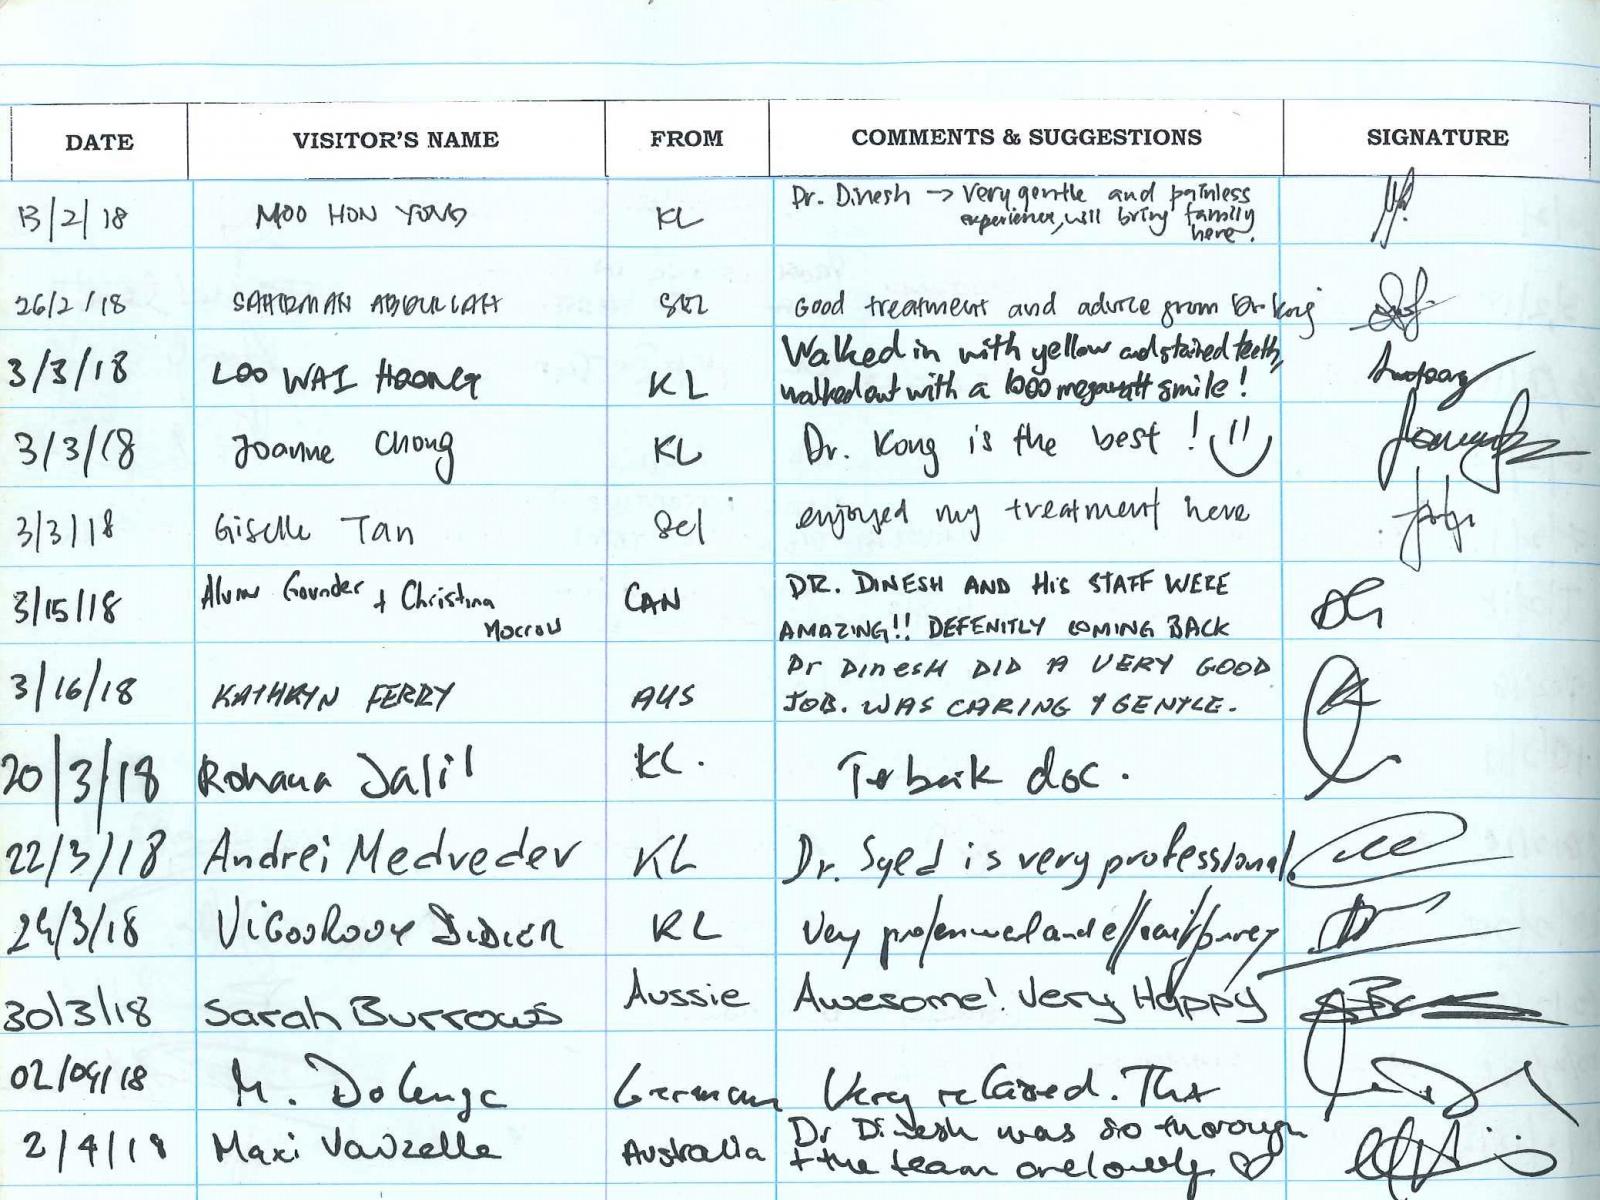 DATE VISITOR'S NAME FROM COMMENTS & SUGGESTIONS SIGNATURE
13/2/18 MOO HON YONG KL Dr. Dinesh → Very gentle and painless
experience, will bring family
here.
26/2/18 SAHIRMAN ABDULLAH SEL Good treatment and advice from Dr Kong
3/3/18 LOO WAI HOONG KL Walked in with yellow and stained teeth,
walked out with a 1000 megawatt smile!
3/3/18 Joanne Chong KL Dr. Kong is the best!
3/3/18 Giselle Tan Sel enjoyed my treatment here
3/15/18 Gounder + Christina CAN DR. DINESH AND HIS STAFF WERE
Morrow AMAZING!! DEFENITLY COMING BACK
3/16/18 KATHRYN FERRY AUS Dr DINESH DID A VERY GOOD
JOB. WAS CARING & GENTLE.
20/3/18 Rohana Jalil KL. Terbaik doc.
22/3/18 Andrei Medvedev KL Dr. Syed is very professional.
24/3/18 DIDIER KL Very and
30/3/18 Sarah Burrows Aussie Awesome! Very Happy
02/04/18 M. Dolenga German Very relaxed. Thx
2/4/18 Maxi Vauzelle Australia Dr Dinesh was so thorough
+ the team are lovely ♡